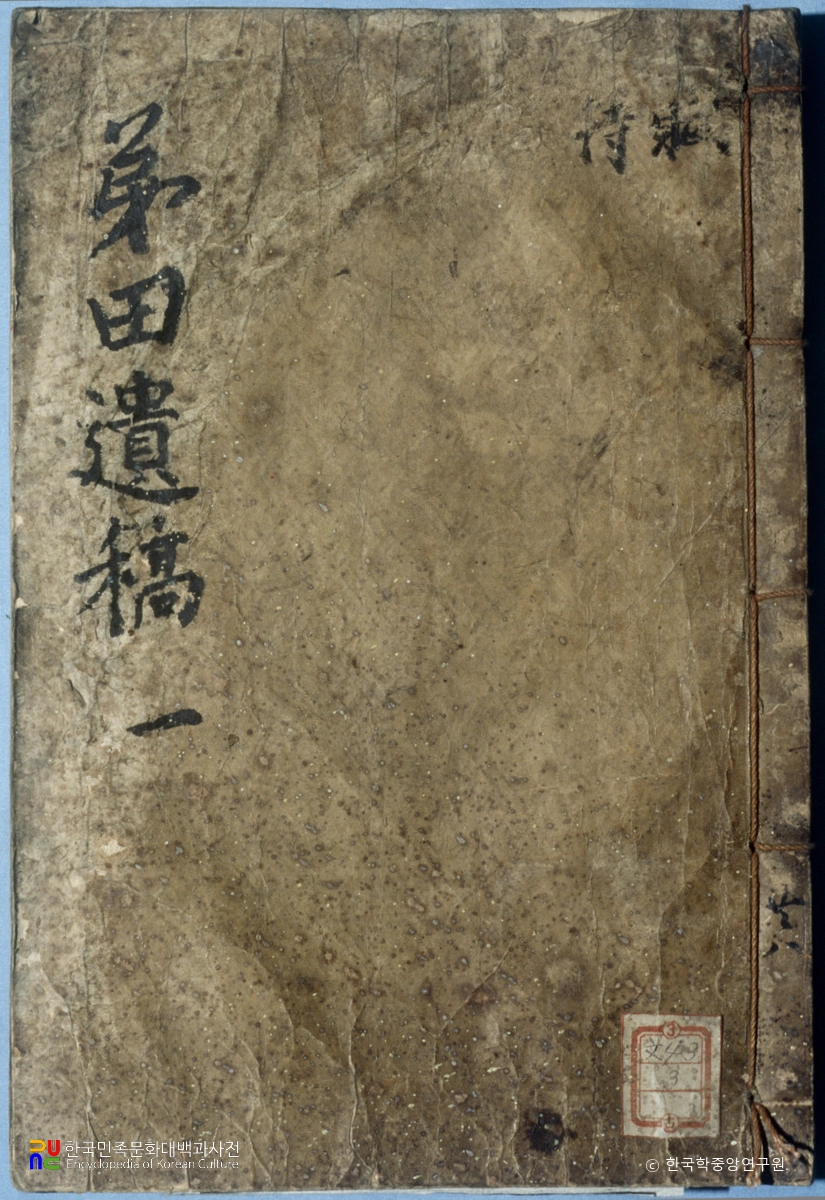 弟田遺稿 一
한국민족문화대백과사전
Encyclopedia of Korean Culture
© 한국학중앙연구원